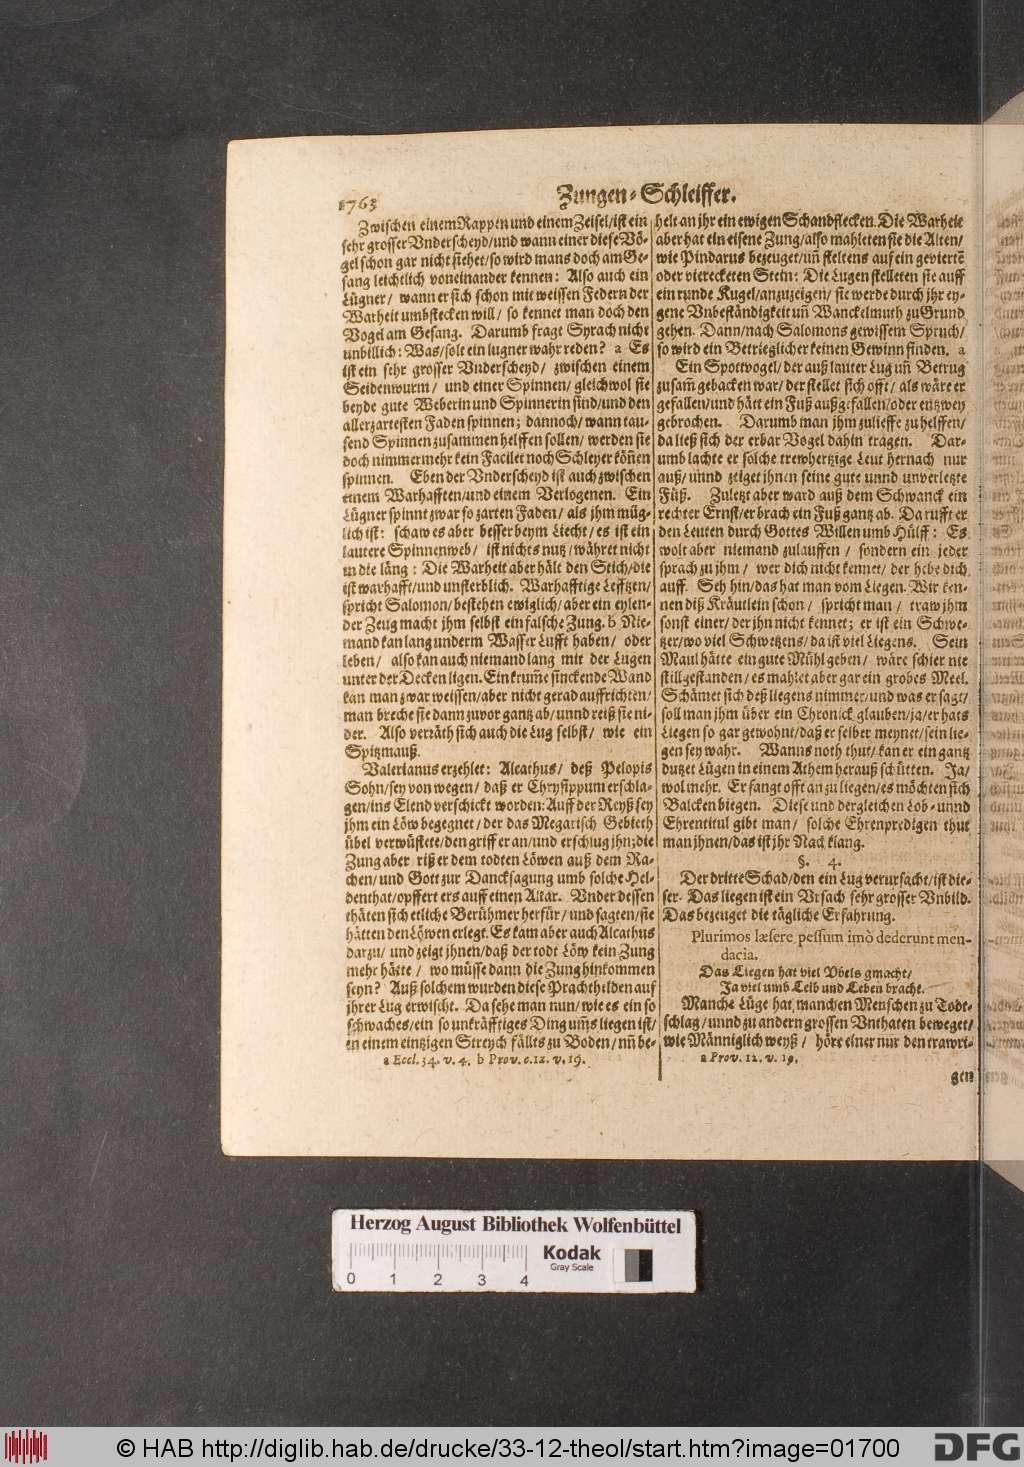 1763
Zungen-Schleiffer.
Zwischen einem Rappen und einem Zeisel/ist ein
sehr grosser Vnderscheyd/und wann einer diese Vö-
gel schon gar nicht siehet/so wird mans doch am Ge-
sang leichtlich voneinander kennen: Also auch ein
Lügner/ wann er sich schon mit weissen Federn der
Warheit umbstecken will/ so kennet man doch den
Vogel am Gesang. Darumb fragt Syrach nicht
unbillich: Was/solt ein lugner wahr reden? a Es
ist ein sehr grosser Vnderscheyd/ zwischen einem
Seidenwurm/ und einer Spinnen/ gleichwol sie
beyde gute Weberin und Spinnerin sind/und den
allerzartesten Faden spinnen; dannoch/wann tau-
send Spinnen zusammen helffen sollen/ werden sie
doch nimmermehr kein Facilet noch Schleyer köñen
spinnen. Eben der Vnderscheyd ist auch zwischen
einem Warhafften/und einem Verlogenen. Ein
Lügner spinnt zwar so zarten Faden/ als jhm müg-
lich ist: schaw es aber besser beym Liecht/ es ist ein
lautere Spinnenweb/ ist nichts nutz/währet nicht
in die läng: Die Warheit aber hält den Stich/die
ist warhafft/und unsterblich. Warhafftige Lefftzen/
spricht Salomon/bestehen ewiglich/aber ein eylen-
der Zeug macht jhm selbst ein falsche Zung. b Nie-
mand kan lang underm Wasser Lufft haben/ oder
leben/ also kan auch niemand lang mit der Lugen
unter der Decken ligen. Ein krum̃e sinckende Wand
kan man zwar weissen/aber nicht gerad auffrichten/
man breche sie dann zuvor gantz ab/unnd reiß sie ni-
der. Also verräth sich auch die Lug selbst/ wie ein
Spitzmauß.
Valerianus erzehlet: Alcathus/ deß Pelopis
Sohn/sey von wegen/ daß er Chrysippum erschla-
gen/ins Elend verschickt worden: Auff der Reyß sey
jhm ein Löw begegnet/der das Megarisch Gebieth
übel verwüstete/den griff er an/und erschlug jhn; die
Zung aber riß er dem todten Löwen auß dem Ra-
chen/und Gott zur Dancksagung umb solche Hel-
denthat/opffert ers auff einen Altar. Vnder dessen
thäten sich etliche Berühmer herfür/und sagten/sie
hätten den Löwen erlegt. Es kam aber auch Alcathus
darzu/ und zeigt jhnen/daß der todt Löw kein Zung
mehr hätte/ wo müsse dann die Zung hinkommen
seyn? Auß solchem wurden diese Prachthelden auf
jhrer Lug erwischt. Da sehe man nun/wie es ein so
schwaches/ein so unkräfftiges Ding um̃s liegen ist/
in einem eintzigen Streych fällts zu Boden/uñ be-
a Eccl. 34. v. 4. b Prov. c. 12. v. 19.
helt an jhr ein ewigen Schandflecken. Die Warheit
aber hat ein eisene Zung/also mahleten sie die Alten/
wie Pindarus bezeuget/uñ steltens auf ein geviertẽ
oder viereckten Stein: Die Lugen stelleten sie auff
ein runde Kugel/anzuzeigen/ sie werde durch jhr ey-
gene Vnbeständigkeit uñ Wanckelmuth zu Grund
gehen. Dann/nach Salomons gewissem Spruch/
so wird ein Betrieglicher keinen Gewinn finden. a
Ein Spottvogel/der auß lauter Lug uñ Betrug
zusam̃ gebacken war/der stellet sich offt/ als wäre er
gefallen/und hätt ein Fuß außgefallen/oder entzwey
gebrochen. Darumb man jhm zulieffe zu helffen/
da ließ sich der erbar Vogel dahin tragen. Dar-
umb lachte er solche trewhertzige Leut hernach nur
auß/unnd zeiget jhnen seine gute unnd unverletzte
Füß. Zuletzt aber ward auß dem Schwanck ein
rechter Ernst/er brach ein Fuß gantz ab. Da rufft er
den Leuten durch Gottes Willen umb Hülff: Es
wolt aber niemand zulauffen/ sondern ein jeder
sprach zu jhm/ wer dich nicht kennet/ der hebe dich
auff. Seh hin/das hat man vom Liegen. Wir ken-
nen diß Kräutlein schon/ spricht man/ traw jhm
sonst einer/der jhn nicht kennet; er ist ein Schwe-
tzer/wo viel Schwetzens/da ist viel Liegens. Sein
Maul hätte ein gute Mühl geben/ wäre schier nie
still gestanden/es mahlet aber gar ein grobes Meel.
Schämet sich deß liegens nimmer/und was er sagt/
soll man jhm über ein Chronick glauben/ja/er hats
Liegen so gar gewohnt/daß er selber meynet/sein lie-
gen sey wahr. Wanns noth thut/kan er ein gantz
dutzet Lügen in einem Athem herauß schütten. Ja/
wol mehr. Er fangt offt an zu liegen/es möchten sich
Balcken biegen. Diese und dergleichen Lob- unnd
Ehrentitul gibt man/ solche Ehrenpredigen thut
man jhnen/das ist jhr Nachklang.
§. 4.
Der dritte Schad/den ein Lug verursacht/ist die-
ser. Das liegen ist ein Vrsach sehr grosser Vnbild.
Das bezeuget die tägliche Erfahrung.
Plurimos læsere, pessum imò dederunt men-
dacia.
Das Liegen hat viel Vbels gmacht/
Ja viel umb Leib und Leben bracht.
Manche Lüge hat manchen Menschen zu Todt-
schlag/unnd zu andern grossen Vnthaten beweget/
wie Männiglich weyß/ höre einer nur den trawri-
a Prov. 12. v. 19.
gen
Herzog August Bibliothek Wolfenbüttel
0 1 2 3 4
Kodak
Gray Scale
© HAB http://diglib.hab.de/drucke/33-12-theol/start.htm?image=01700
DFG